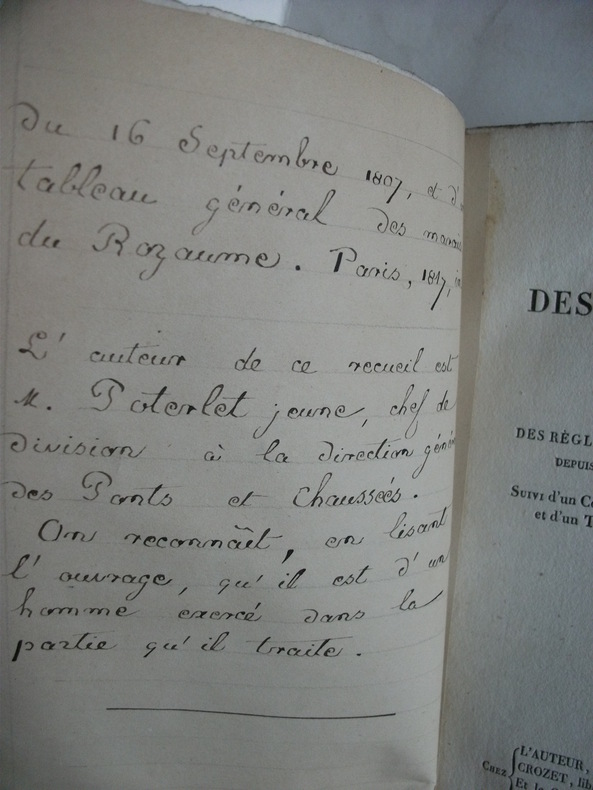 Du 16 Septembre 1807, et d'u
tableau général des marais
du Royaume. Paris, 1817, in
L'auteur de ce recueil est
M. Poterlet jeune, chef de
division à la direction génér
des Ponts et Chaussées.
On reconnaît, en lisant
l'ouvrage, qu'il est d'un
homme exercé dans la
partie qu'il traite.
DES
DES RÉGL
DEPUIS
SUIVI d'un Co
et d'un T
CHEZ
L'AUTEUR,
CROZET, lib